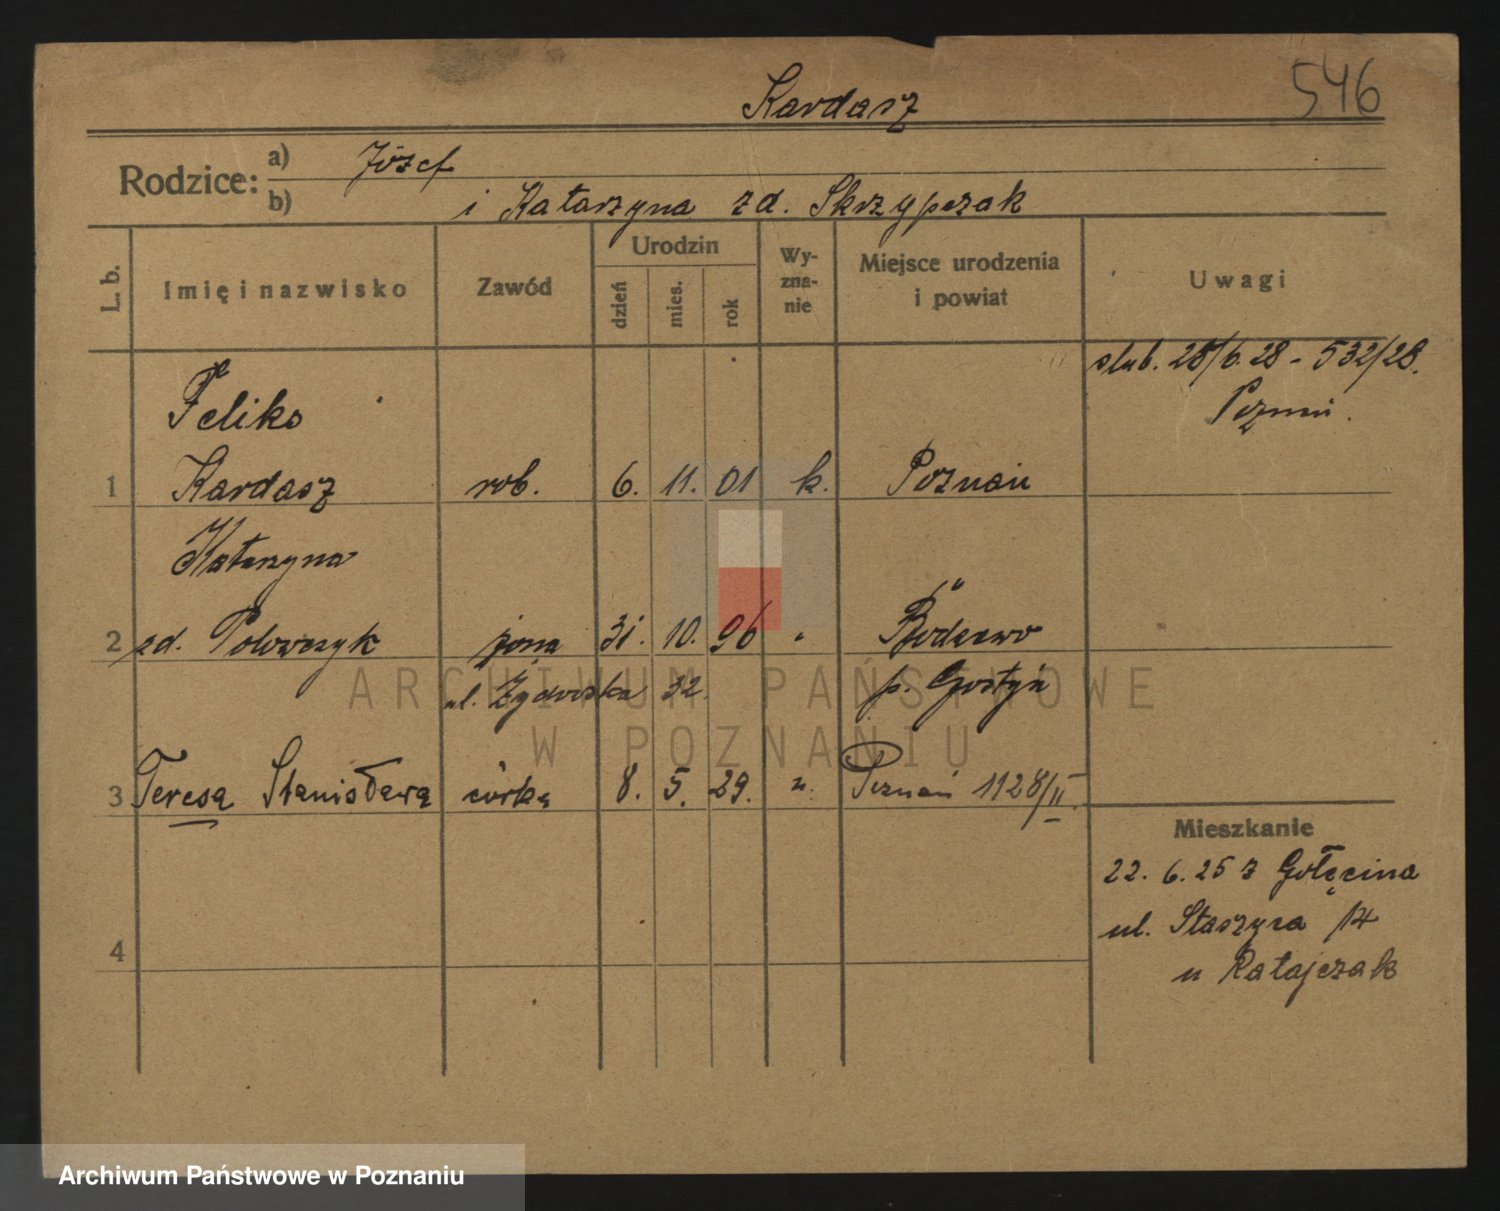 546
Kardasz
Rodzice:
a) Józef
b) i Katarzyna zd. Skrzypczak
L. b.
Imię i nazwisko
Zawód
Urodzin
dzień
mies.
rok
Wy-
zna-
nie
Miejsce urodzenia
i powiat
Uwagi
ślub. 28/6.28 - 532/28.
Poznań.
Feliks
1 Kardasz rob. 6. 11. 01 k. Poznań
Katarzyna
2 zd. Polowczyk żona 31. 10. 96 " Bodzewo
ul. Żydowska 32. p. Gostyń
3 Teresa Stanisława córka 8. 5. 29. " Poznań 1128/II.
4
Mieszkanie
22. 6. 25 z Gołęcina
ul. Staszyca 14
u Ratajczak
ARCHIWUM PAŃSTWOWE
W POZNANIU
Archiwum Państwowe w Poznaniu